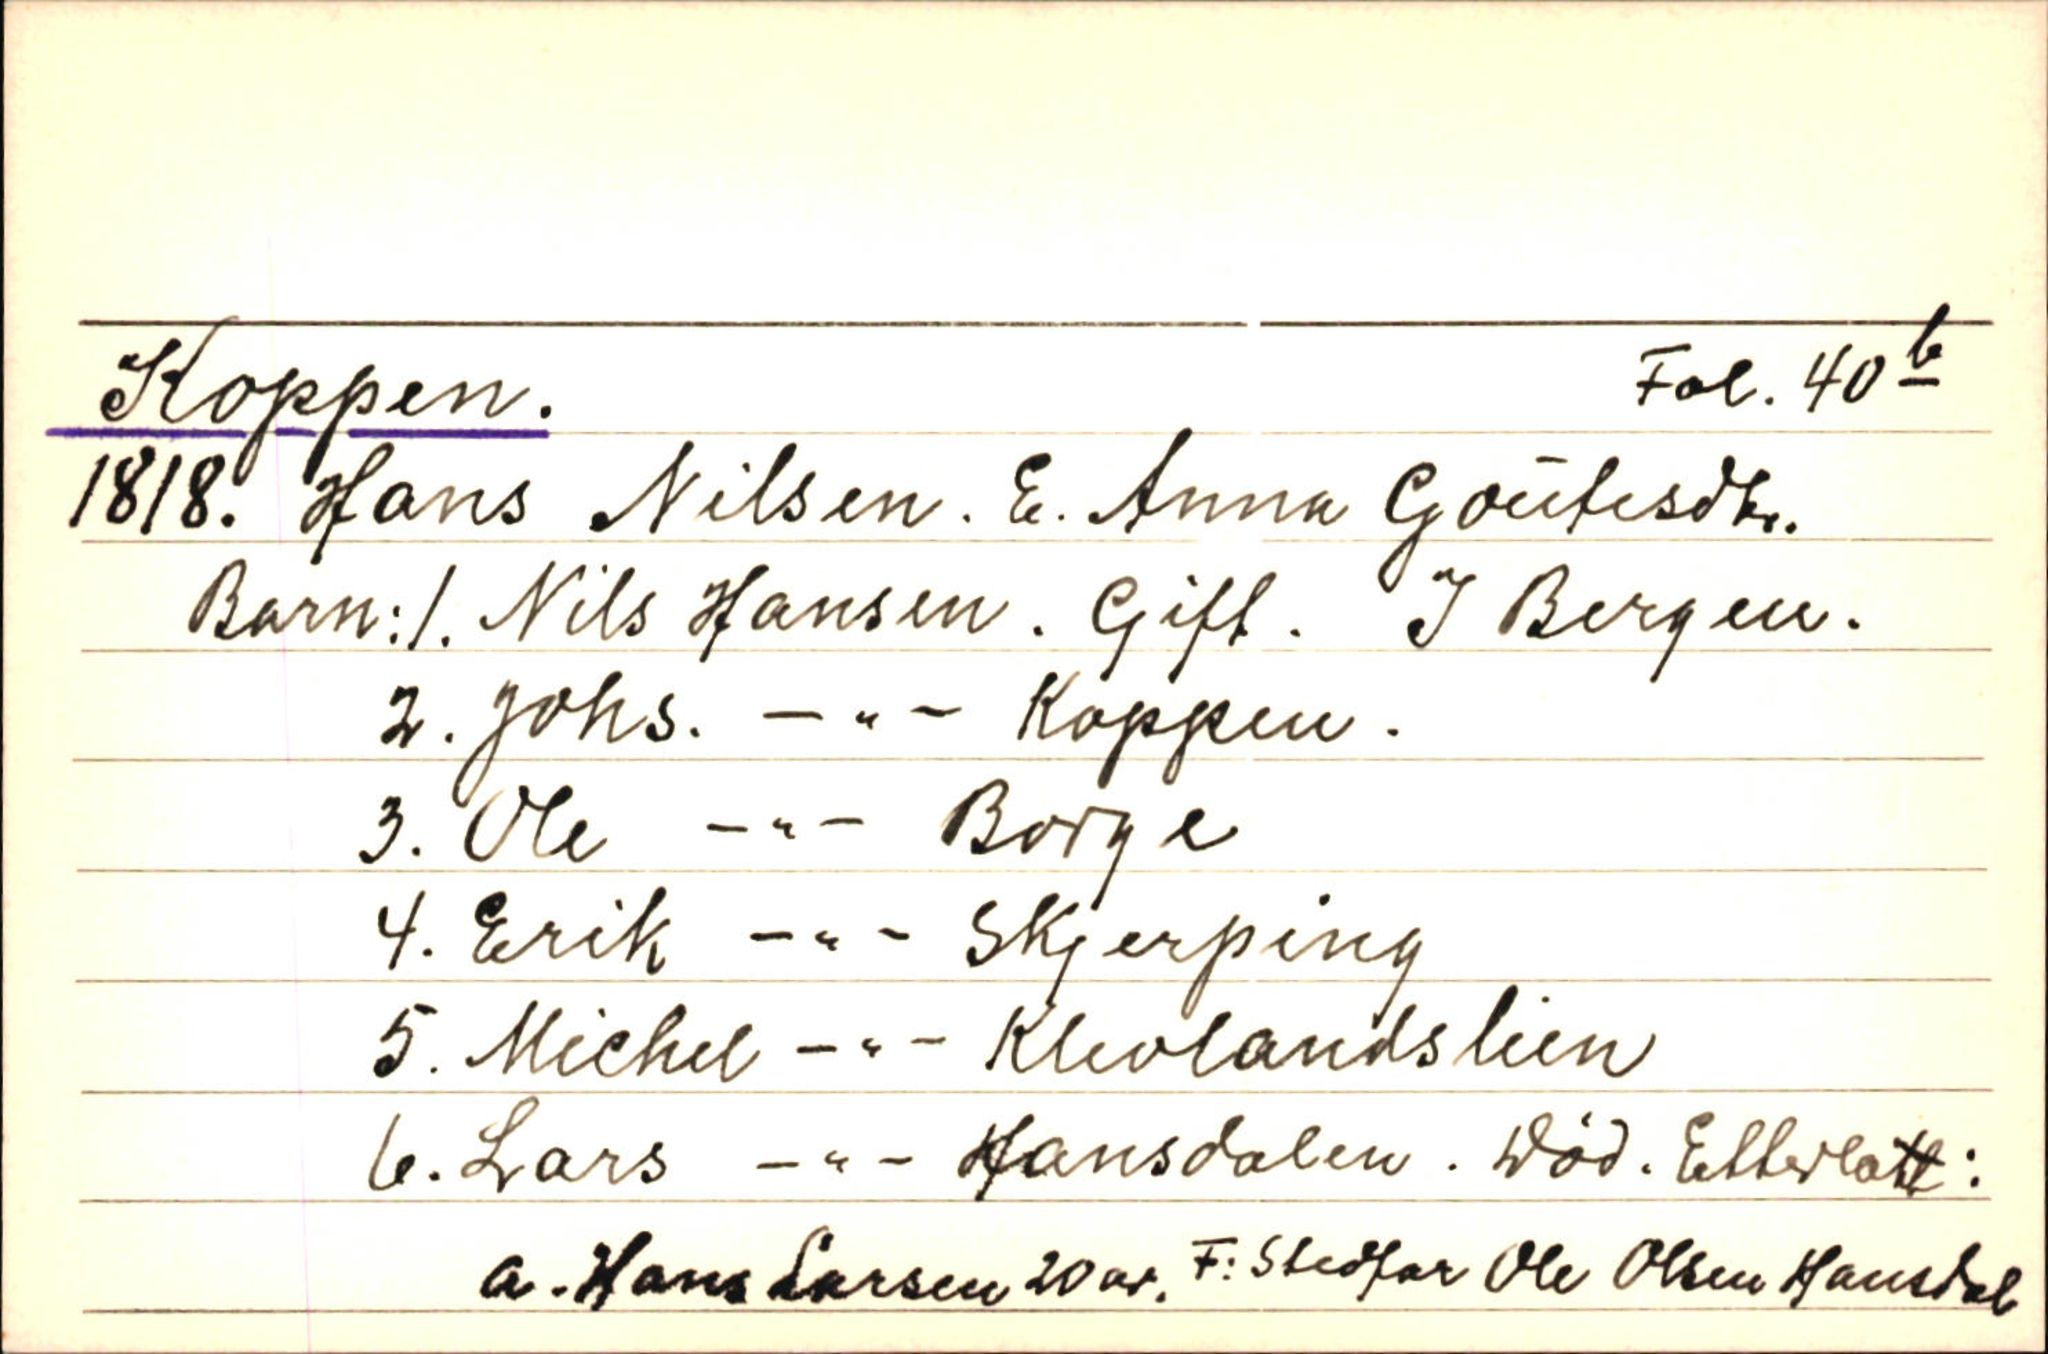 Koppen. Fol. 40 b
1818. Hans Nilsen. E. Anna Goutesdtr.
Barn: 1. Nils Hansen. Gift. I Bergen.
2. Johs. -"- Koppen.
3. Ole -"- Borge
4. Erik -"- Skjerping
5. Michel -"- Klevlandslien
6. Lars -"- Hansdalen. Död. Etterlatt:
a. Hans Larsen 20 år. F: Stedfar Ole Olsen Hansdal